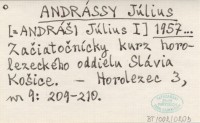 ANDRÁSSY Július
[=ANDRÁŠI Július I] 1957...
Začiatočnícky kurz horo-
lezeckého oddielu Slávia
Košice. – Horolezec 3,
nr 9: 209-210.